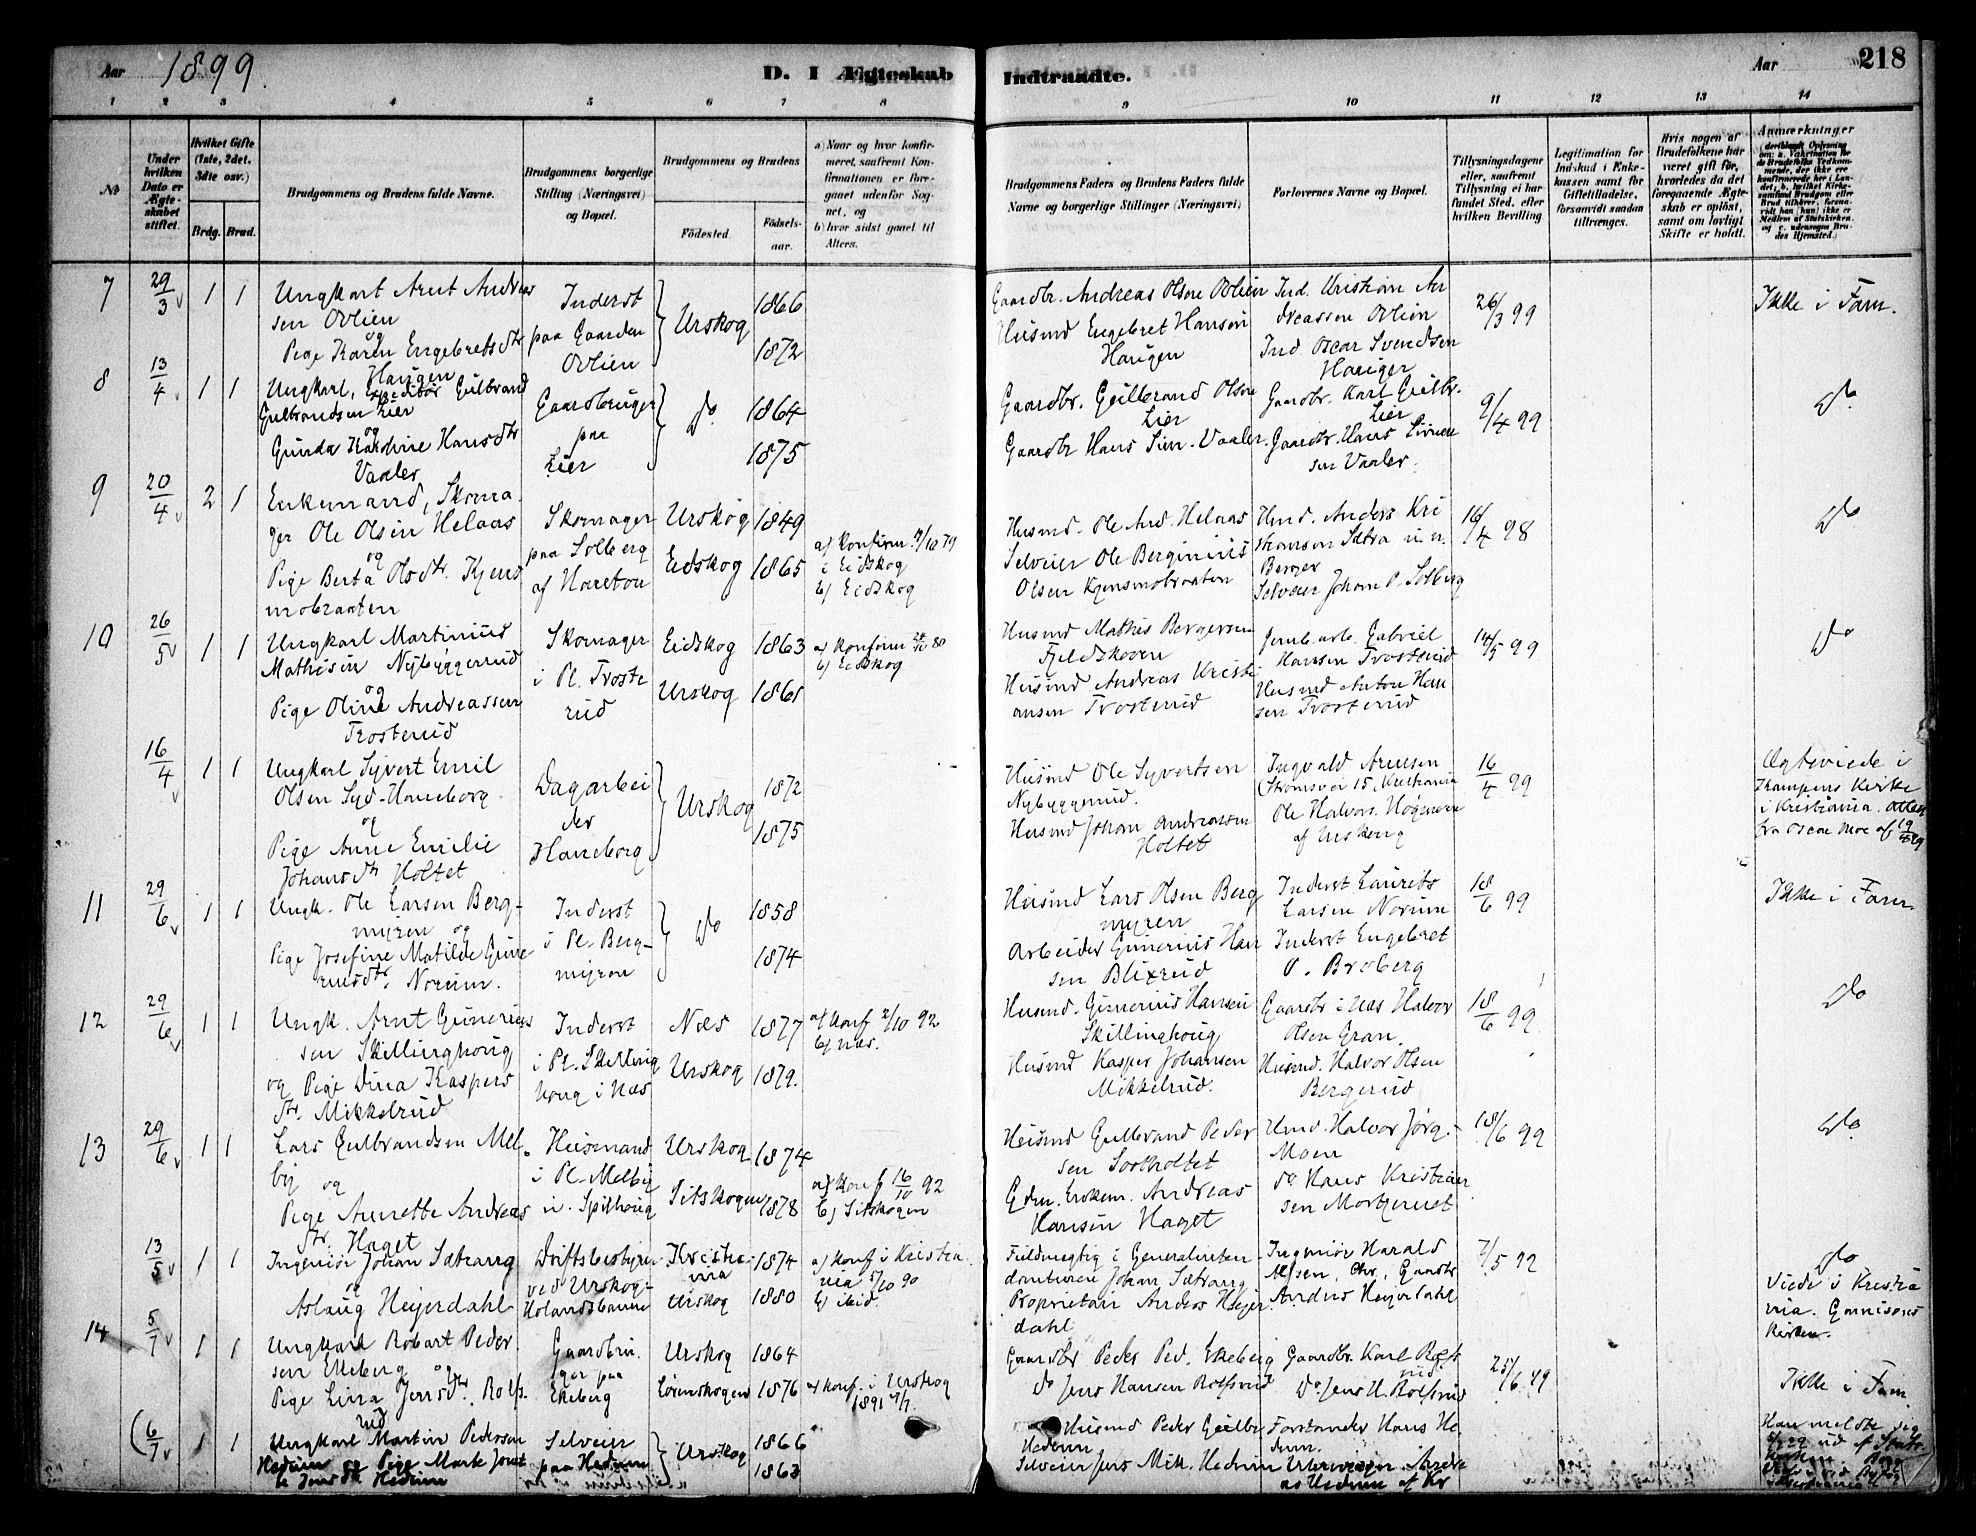 Aar 1899. D. I Ægteskab Indtraadte. Aar 218
1 2 3 4 5 6 7 8 9 10 11 12 13 14
№
Under hvilken Dato er Ægteskabet stiftet.
Hvilket Gifte (1ste, 2det, 3dte osv.)
Brdg. Brud.
Brudgommens og Brudens fulde Navne.
Brudgommens borgerlige Stilling (Næringsvei) og Bopæl.
Brudgommens og Brudens
Fødested. Fødselsaar.
a) Naar og hvor konfirmeret, saafremt Konfirmationen er foregaaet udenfor Sognet, og
b) hvor sidst gaaet til Alters.
Brudgommens Faders og Brudens Faders fulde Navne og borgerlige Stillinger (Næringsvei)
Forlovernes Navne og Bopæl.
Tillysningsdagene eller, saafremt Tillysning ei har fundet Sted, efter hvilken Bevilling
Legitimation for Indskud i Enkekassen samt for Giftetilladelse, forsaavidt saadan tiltrænges.
Hvis nogen af Brudefolkene har været gift før, hvorledes da det foregaaende Ægteskab er opløst, samt om lovligt Skifte er holdt.
Anmærkninger
7 29/3 1 1
Ungkarl Arnt Andreas
sen Ovlien
og
Pige Karen Engebretsdtr
Haugen
Inderst
paa Gaarden
Ovlien
Urskog
1866
1872
Gaardbr. Andreas Olsen Ovlien
Husmd Engebret Hansen
Haugen
Ind. Kristian An
dreassen Ovlien
Ind. Oscar Svendsen
Haugen
26/3 99
Ikke i Fam.
8 13/4 1 1
Ungkarl, Gulbrand
Gulbrandsen Lier
og
Gunda Karoline Hansdtr
Vaaler
Gaardbruger
paa
Lier
do
1864
1875
Gaardbr. Gulbrand Olsen
Lier
Gaardbr Hans Sim. Vaaler
Gaardbr. Karl Gulbr.
Lier
Gaardbr. Hans Simen
sen Vaaler.
9/4 99
do
9 20/4 2 1
Enkemand, Skoma
ger Ole Olsen Helaas
og
Pige Berta Olsdtr. Kjens
mobraaten
Skomager
paa Solberg
af Haneton
Urskog
Eidskog
1849
1865
a) Konfirm. /10 79
i Eidskog
b) Eidskog
Husmd. Ole And. Helaas
Selveier Ole Berginius
Olsen Kjensmobraaten
Hmd. Anders Kri
stiansen Sætra u. n.
Berger
Selveier Johan P. Solberg
16/4 98
do
10 26/5 1 1
Ungkarl Martinius
Mathisen Nybyggerud
og
Pige Oline Andreassen
Trosterud
Skomager
i Pl. Troste
rud
Eidskog
Urskog
1863
1865
a) Konfirm 80
b) Eidskog
Husmd Mathis Bergersen
Fjeldskoven
Husmd Andreas Kristi
ansen Trosterud
Jernb.arb. Gabriel
Hansen Trosterud
Husmd Anton Han
sen Trosterud
14/5 99
do
16/4 1 1
Ungkarl Syvert Emil
Olsen Syd-Haneborg
og
Pige Anne Emilie
Johansdtr Holtet
Dagarbei
der
Haneborg
Urskog
1872
1875
Husmd Ole Syvertsen
Nybyggerud.
Husmd Johan Andreassen
Holtet
Ingvald Arnesen
(Strømsvei 15, Kristiania
Ole Halvors. Høgmoen
af Urskog
16/4 99
Ægteviede i
Kampens Kirke
i Kristiania. Attest
fra Oscar Moe af 19/4 99
11 29/6 1 1
Ungk. Ole Larsen Berg-
myren og
Pige Josefine Matilde Gune
riusdtr. Norum.
Inderst
i Pl. Berg-
myren
do
1858
1874
Husmd Lars Olsen Berg
myren
Arbeider Gunerius Han
sen Blixrud
Inderst Laurits
Larsen Norum
Inderst Engebret
O. Broberg
18/6 99
Ikke i Fam.
12 29/6 1 1
Ungk. Arnt Gunerius
sen Skillinghoug
og Pige Dina Kaspers
dtr. Mikkelrud
Inderst
i Pl. Skilling
houg i Næs
Næs
Urskog
1877
1879.
a) Konf 2/10 92
b) Næs.
Husmd. Gunerius Hansen
Skillinghoug
Husmd Kasper Johansen
Mikkelrud.
Gaardbr i Næs Halvor
Olsen Gran.
Husmd. Halvor Olsen
Bergerud
18/6 99
do
13 29/6 1 1
Lars Gulbrandsen Mel
by og
Pige Annette Andreas
dtr. Haget
Husmand
i Pl. Melby
u. Spilhoug
Urskog
Sitskogen
1874
1878
a) Konf 16/10 92
b) Sitskogen
Husmd Gulbrand Peder
sen Sootholtet
Gdm. Enkem. Andreas
Hansen Haget
Hmd. Halvor Jørg.
Moen
do Hans Kristian
sen Mortgernet
18/6 99
do
13/5 1 1
Ingeniør Johan Sætrang
og
Aslaug Heyerdahl
Driftsbestyrer
ved Urskog-
Hølandsbanen
Kristia
nia
Urskog
1874
1880
a) Konf i Kristia
nia 5/10 90
b) ibid.
Fuldmægtig i Generalinten-
danturen Johan Sætrang
Proprietair Anders Heyer
dahl
Ingeniør Harald
Alfsen, Chr., Gaardbr
Anders Heyerdahl
7/5 92
do
Viede i Kristia
nia. Garnisons
Kirken.
14 5/7 1 1
Ungkarl Robart Peder
sen Ekeberg og
Pige Lina Jensdtr. Rolfs
rud
Gaardbru
ger paa
Ekeberg
Urskog
Lørenskogen
1864
1876
a) Konf. i Urskog
1891
Gaardbr Peder Ped. Ekeberg
do Jens Hansen Rolfsrud
Gaardbr. Karl Rolfs
rud
do Jens H. Rolfsrud
25/6 99
Ikke i Fam
(6/7 1 1
Ungkarl Martin Pedersen
Hedum og Pige
Jensdtr Hedum
Selveier
paa Hedum
Urskog
1866
1863
Husmd Peder Gulbr
Hedum
Selveier Jens Mik. Hedum
Forstander Hans He
dum.
Han meldte sig
ud af Stats
Kirken